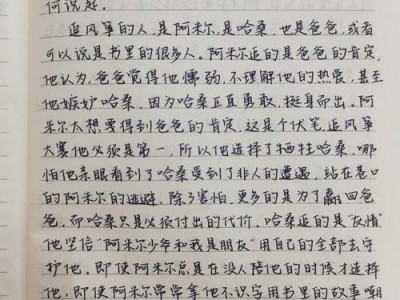 何说起。
追风筝的人,是阿米尔,是哈桑,也是爸爸,或者
可以说是书里的很多人。阿米尔追的是爸爸的肯定,
他认为,爸爸觉得他懦弱,不理解他的热爱,甚至
他嫉妒哈桑,因为哈桑正直勇敢,挺身而出。阿
米尔太想要得到爸爸的肯定,这是个伏笔,追风筝
大赛他必须是第一,所以他选择了牺牲哈桑,哪
怕他亲眼看到了哈桑受到了非人的遭遇,站在巷口
的阿米尔的逃避,除了害怕,更多的是为了赢回爸
爸,而哈桑只是必须付出的代价。哈桑追的是"友情"
他坚信"阿米尔少爷和我是朋友"用自己的全部去守
护他。即使阿米尔总是在没人陪他的时候才选择
他,即使阿米尔常常拿他不识字用书里的故事嘲